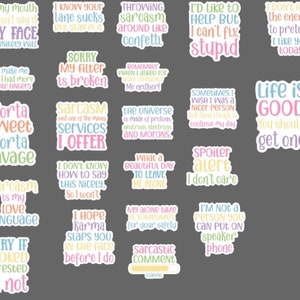 my mouth
say it
MY FACE
definitely will
I KNOW YOUR
lane sucks
THROWING
sarcasm
around like
confetti
I'D LIKE TO
HELP BUT
I can't fix
stupid
I don't
the en
to pret
I like y
today
make me
had more
fingers
SORRY
My filter
is broken
REMEMBER
when I asked for
Me neither!
sorta
sweet
sorta
savage
Sarcasm
just one of the many
services
I OFFER
THE UNIVERSE
is made of protons,
neutrons, electrons
AND MORONS
SOMETIMES I
WISH I WAS A
nicer person
but then I laugh &
continue my day
Life is
GOOD
You should
get one
Sarcasm
is my
love
language
I DON'T KNOW
HOW TO SAY
THIS NICELY
So I won't
WHAT A
beautiful day
TO LEAVE
ME ALONE
Spoiler
alert
I don't care
SORRY IF
looked
interested
I'm not
I HOPE
karma
SLAPS YOU
IN THE FACE
before I do
MY ALONE TIME
is sometimes
for your safety
I'M NOT A
PERSON YOU
CAN PUT ON
speaker
phone
Sarcastic
COMMENT
LOADING